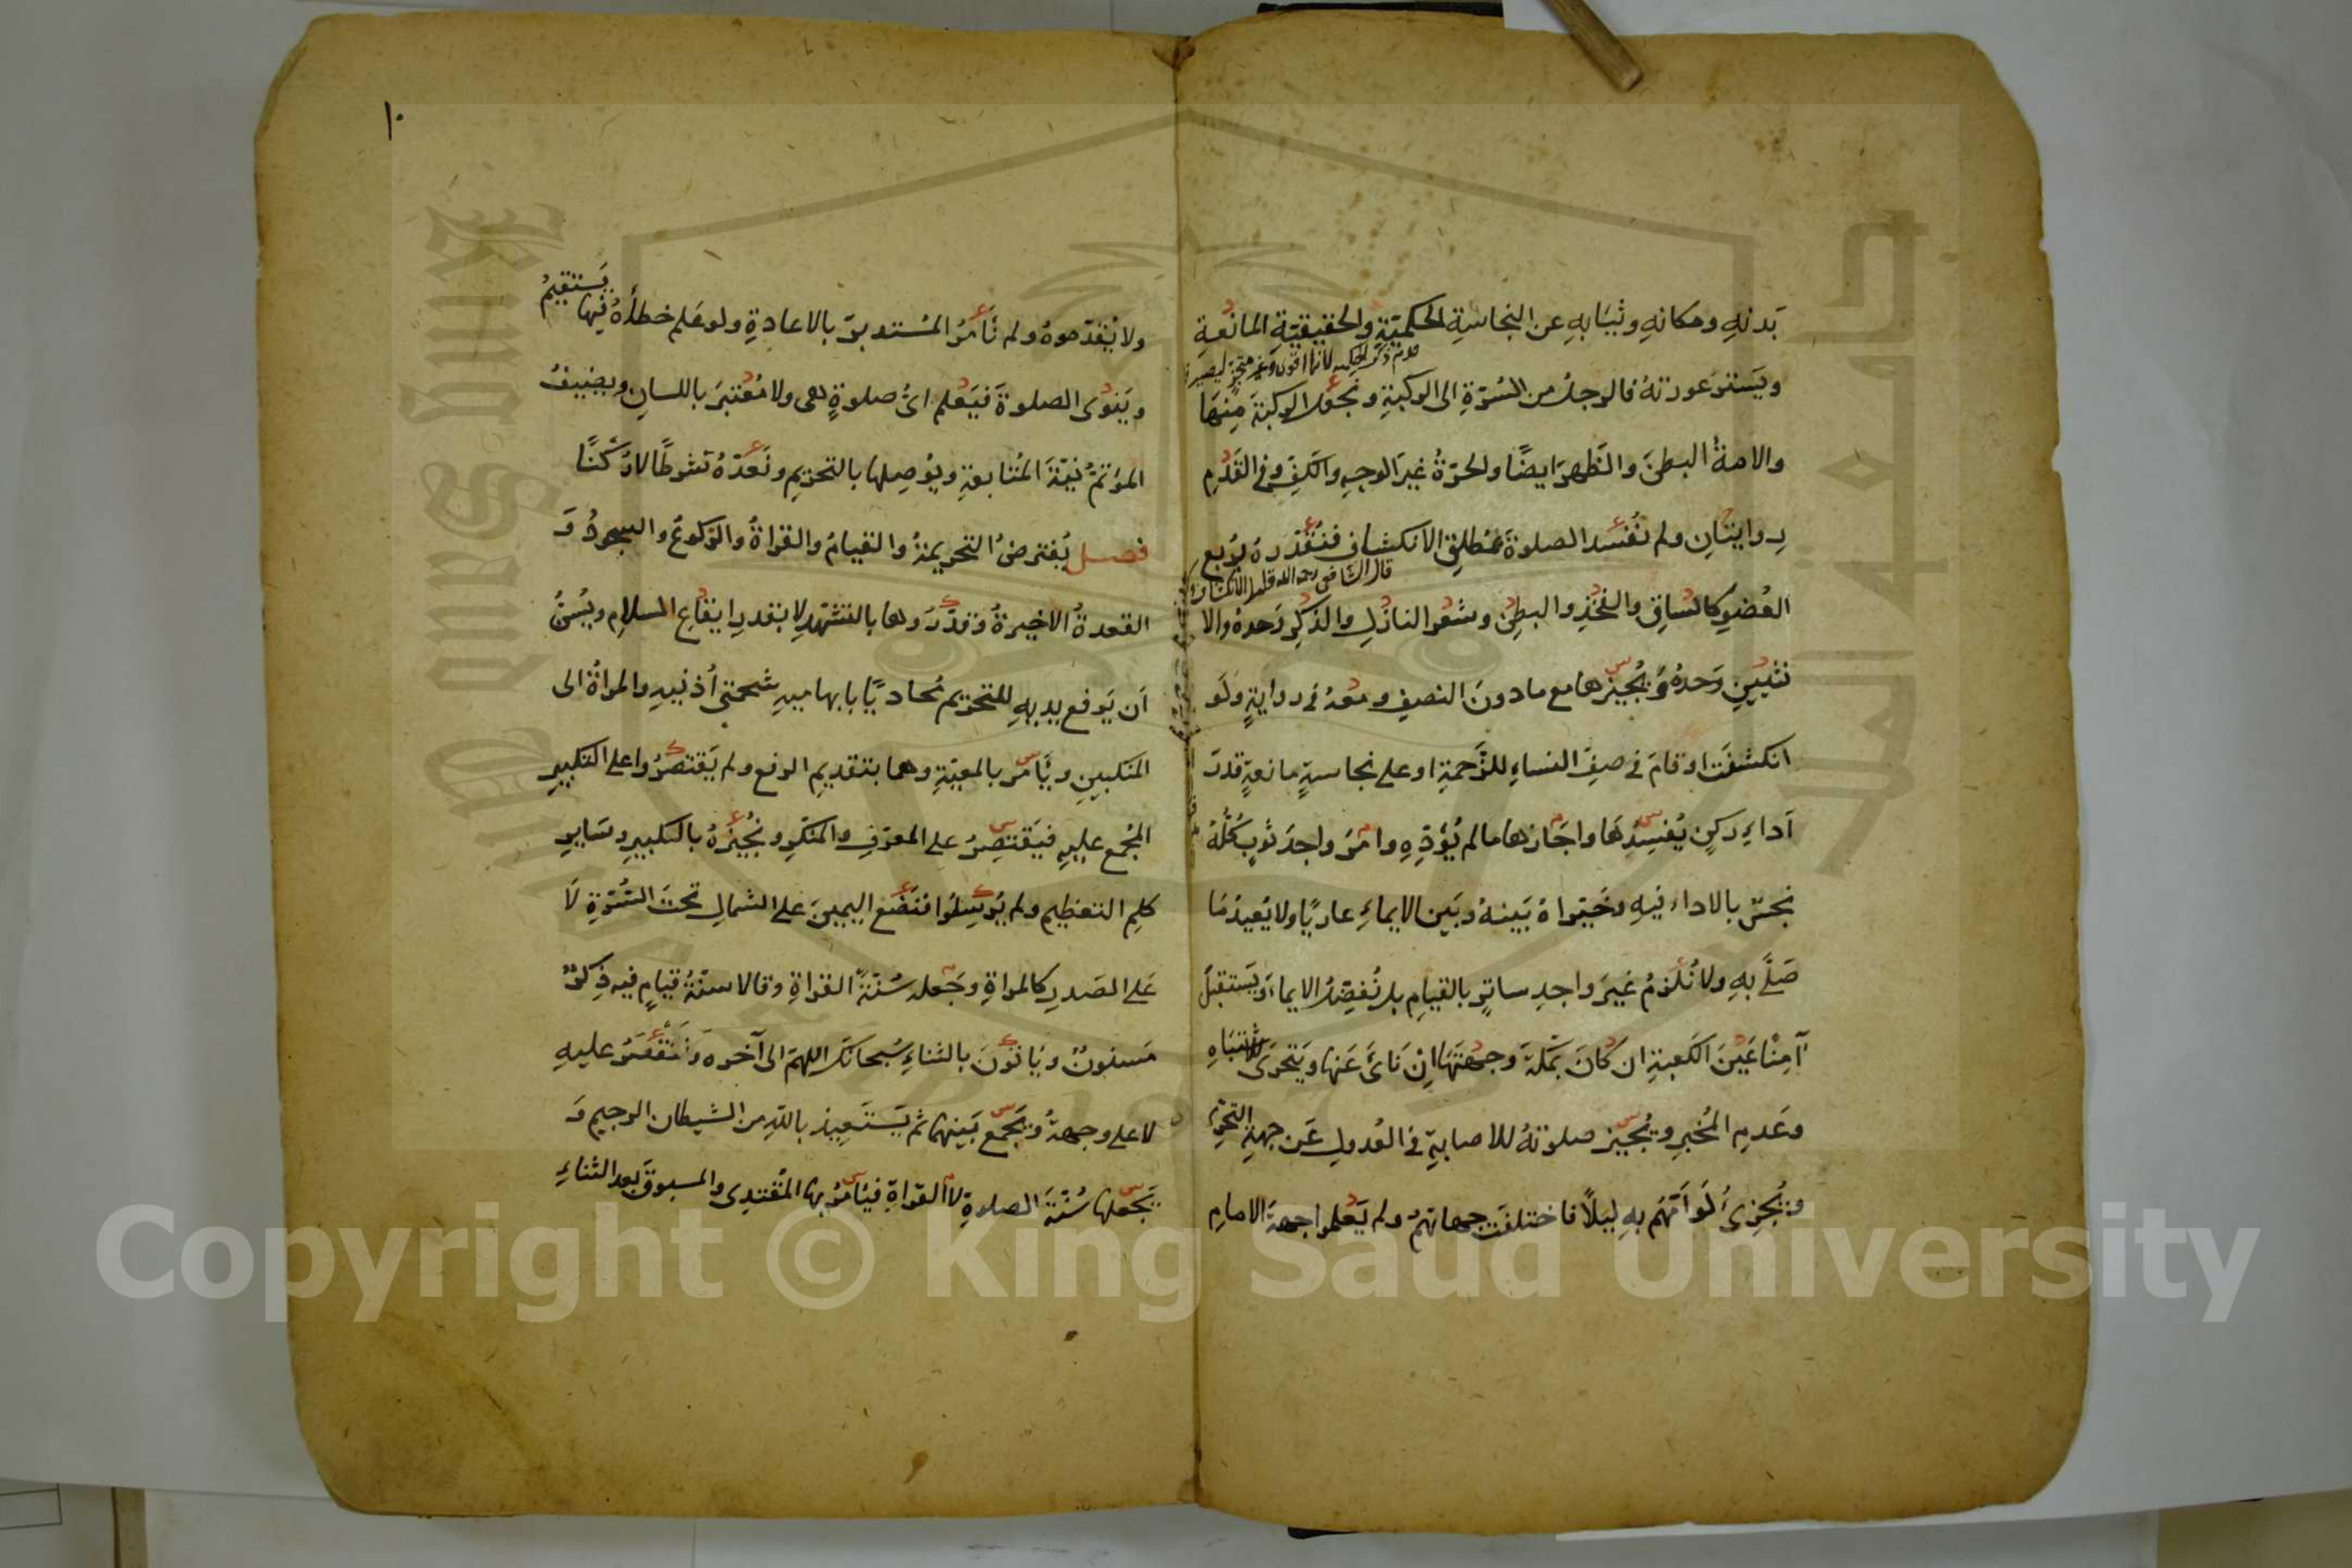 بَدنهِ ومكانهِ وثيَابهِ عن النجاسةِ الحكميّةِ والحقيقيّةِ المانعةِ
ويَسترَ عورتهُ فالرجلُ من السُّرّةِ الى الركبةِ ونجعل الركبةَ مِنهَا
والامةُ البطنَ والظهرَ ايضًا والحرّةُ غيرَ الوجهِ والكفِّ وفى القَدَمِ
رِوايتانِ ولم نُفسد الصلوةَ بمُطلق الانكشاف فنُقدّرهُ برُبع
العُضوِ كالسَّاقِ والفخذِ والبطنِ وشعر النازلِ والذكرِ وَحدهُ والا
نثيينِ وَحدهُ ويُجيزها مع مادونَ النصفِ ومعهُ فى روايةٍ ولَو
انكشفَت او قامَ فى صفِّ النساءِ للزَّحمةِ او على نجاسةٍ مانعةٍ قدرَ
اَداءِ ركنٍ يُفسِدُهَا واجَازها مالم يُؤدِّهِ وامَرَ واجدَ ثوبٍ كلُّهُ
نجسٌ بالاداء فيهِ وخَيّراهُ بَينهُ وبَين الايماءِ عاريًا ولا يُعيدُ مَا
صَلَّى بهِ ولا نُلزمُ غيرَ واجدِ ساترٍ بالقيامِ بل نُفضّلُ الايماءَ ويَستقبلُ
آمِنًا عَينَ الكَعبةِ ان كانَ بمكّةَ وجهتَهَا اِنْ نَائَ عَنها ويَتحرّى للاشتباهِ
وعَدمِ المُخبرِ ويُجيز صلوتهُ للاصابةِ فى العُدولِ عَن جهةِ التحرِّى
ويُجزئُ لَو اَمَّهم بهِ ليلًا فاختلفَت جهاتهُم ولم يَعلموا جهةَ الامامِ
١٠
ولا يُقدّموهُ ولم نَأمُر المُستدبرَ بالاعادةِ ولو عَلم خطأهُ فيها يَستقيمُ
ويَنوى الصلوةَ فيَعلم اىُّ صلوةٍ هى ولا مُعتبرَ باللسانِ ويضيفُ
المؤتمُّ نيّةَ المُتابعةِ ويُوصِلها بالتحريمِ ونَعُدّهُ شرطًا لا رُكنًا
فصل يُفترضُ التحريمةُ والقيامُ والقراةُ والركوعُ والسجودُ وَ
القعدةُ الاخيرةُ وقدّرَوها بالتشهّدِ لا بقدرِ ايقاعِ السلامِ ويُسنُّ
اَن يَرفع يديهِ للتحريم مُحاديًا بابهاميهِ شحمتى اُذنيهِ والمراةُ الى
المنكبينِ ويَأمرُ بالمعيّةِ وهما بتقديمِ الرفع ولم يَقتصرُوا على التكبيرِ
المُجمع عليهِ فيَقتصِرُ على المعرّفِ والمنكّرِ ونُجيزهُ بالتكبيرِ وسَايرِ
كلمِ التعظيمِ ولم يُرسِلُوا فنَضَع اليمينَ على الشمالِ تحتَ السُّرّةِ لَا
عَلى الصَدرِ كالمراةِ وجَعله سُنّةَ القراةِ وقالا سنّةُ قيامٍ فيه ذِكرٌ
مَسنونٌ ويَاتُونَ بالثناءِ سُبحانكَ اللهمّ الى آخره ونَقتصرُ عليهِ
لا على وجهتُ ويَجمع بَينهما ثم يَستَعِيذ باللهِ من الشيطان الرجيم وَ
يَجعلها سُنّةَ الصلوةِ لا القراةِ فيَامرُ بها المُقتدى والمسبوقَ بعد الثناءِ
Copyright © King Saud University